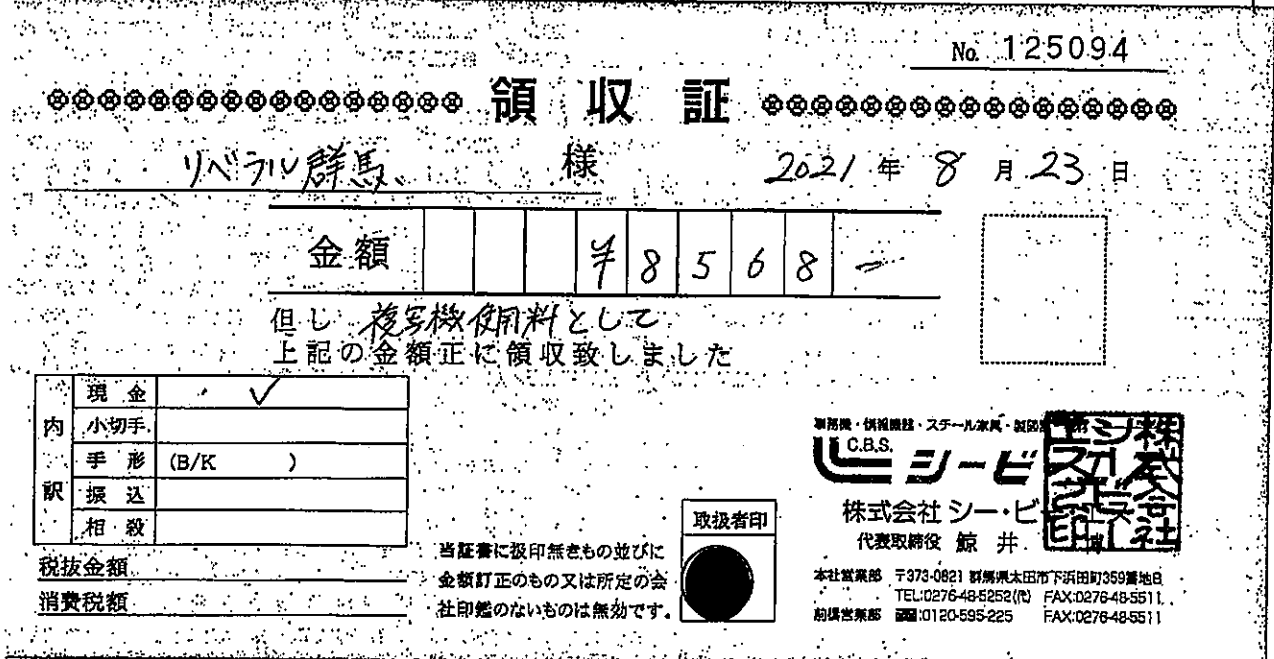 No. 125094
領収証
リベラル群馬 様 2021年8月23日
金額 ¥8568-
但し 複写機使用料として
上記の金額正に領収致しました
内訳
現金 ✓
小切手
手形 (B/K )
振込
相殺
税抜金額
消費税額
当証書に扱印無きもの並びに
金額訂正のもの又は所定の会
社印鑑のないものは無効です。
取扱者印
事務機・情報機器・スチール家具・製図
C.B.S.
シービ
株式会社 シー・ビー
代表取締役 鯨井
本社営業部 〒373-0821 群馬県太田市下浜田町359番地8
TEL:0276-48-5252(代) FAX:0276-48-5511
前橋営業部 :0120-595-225 FAX:0276-48-5511